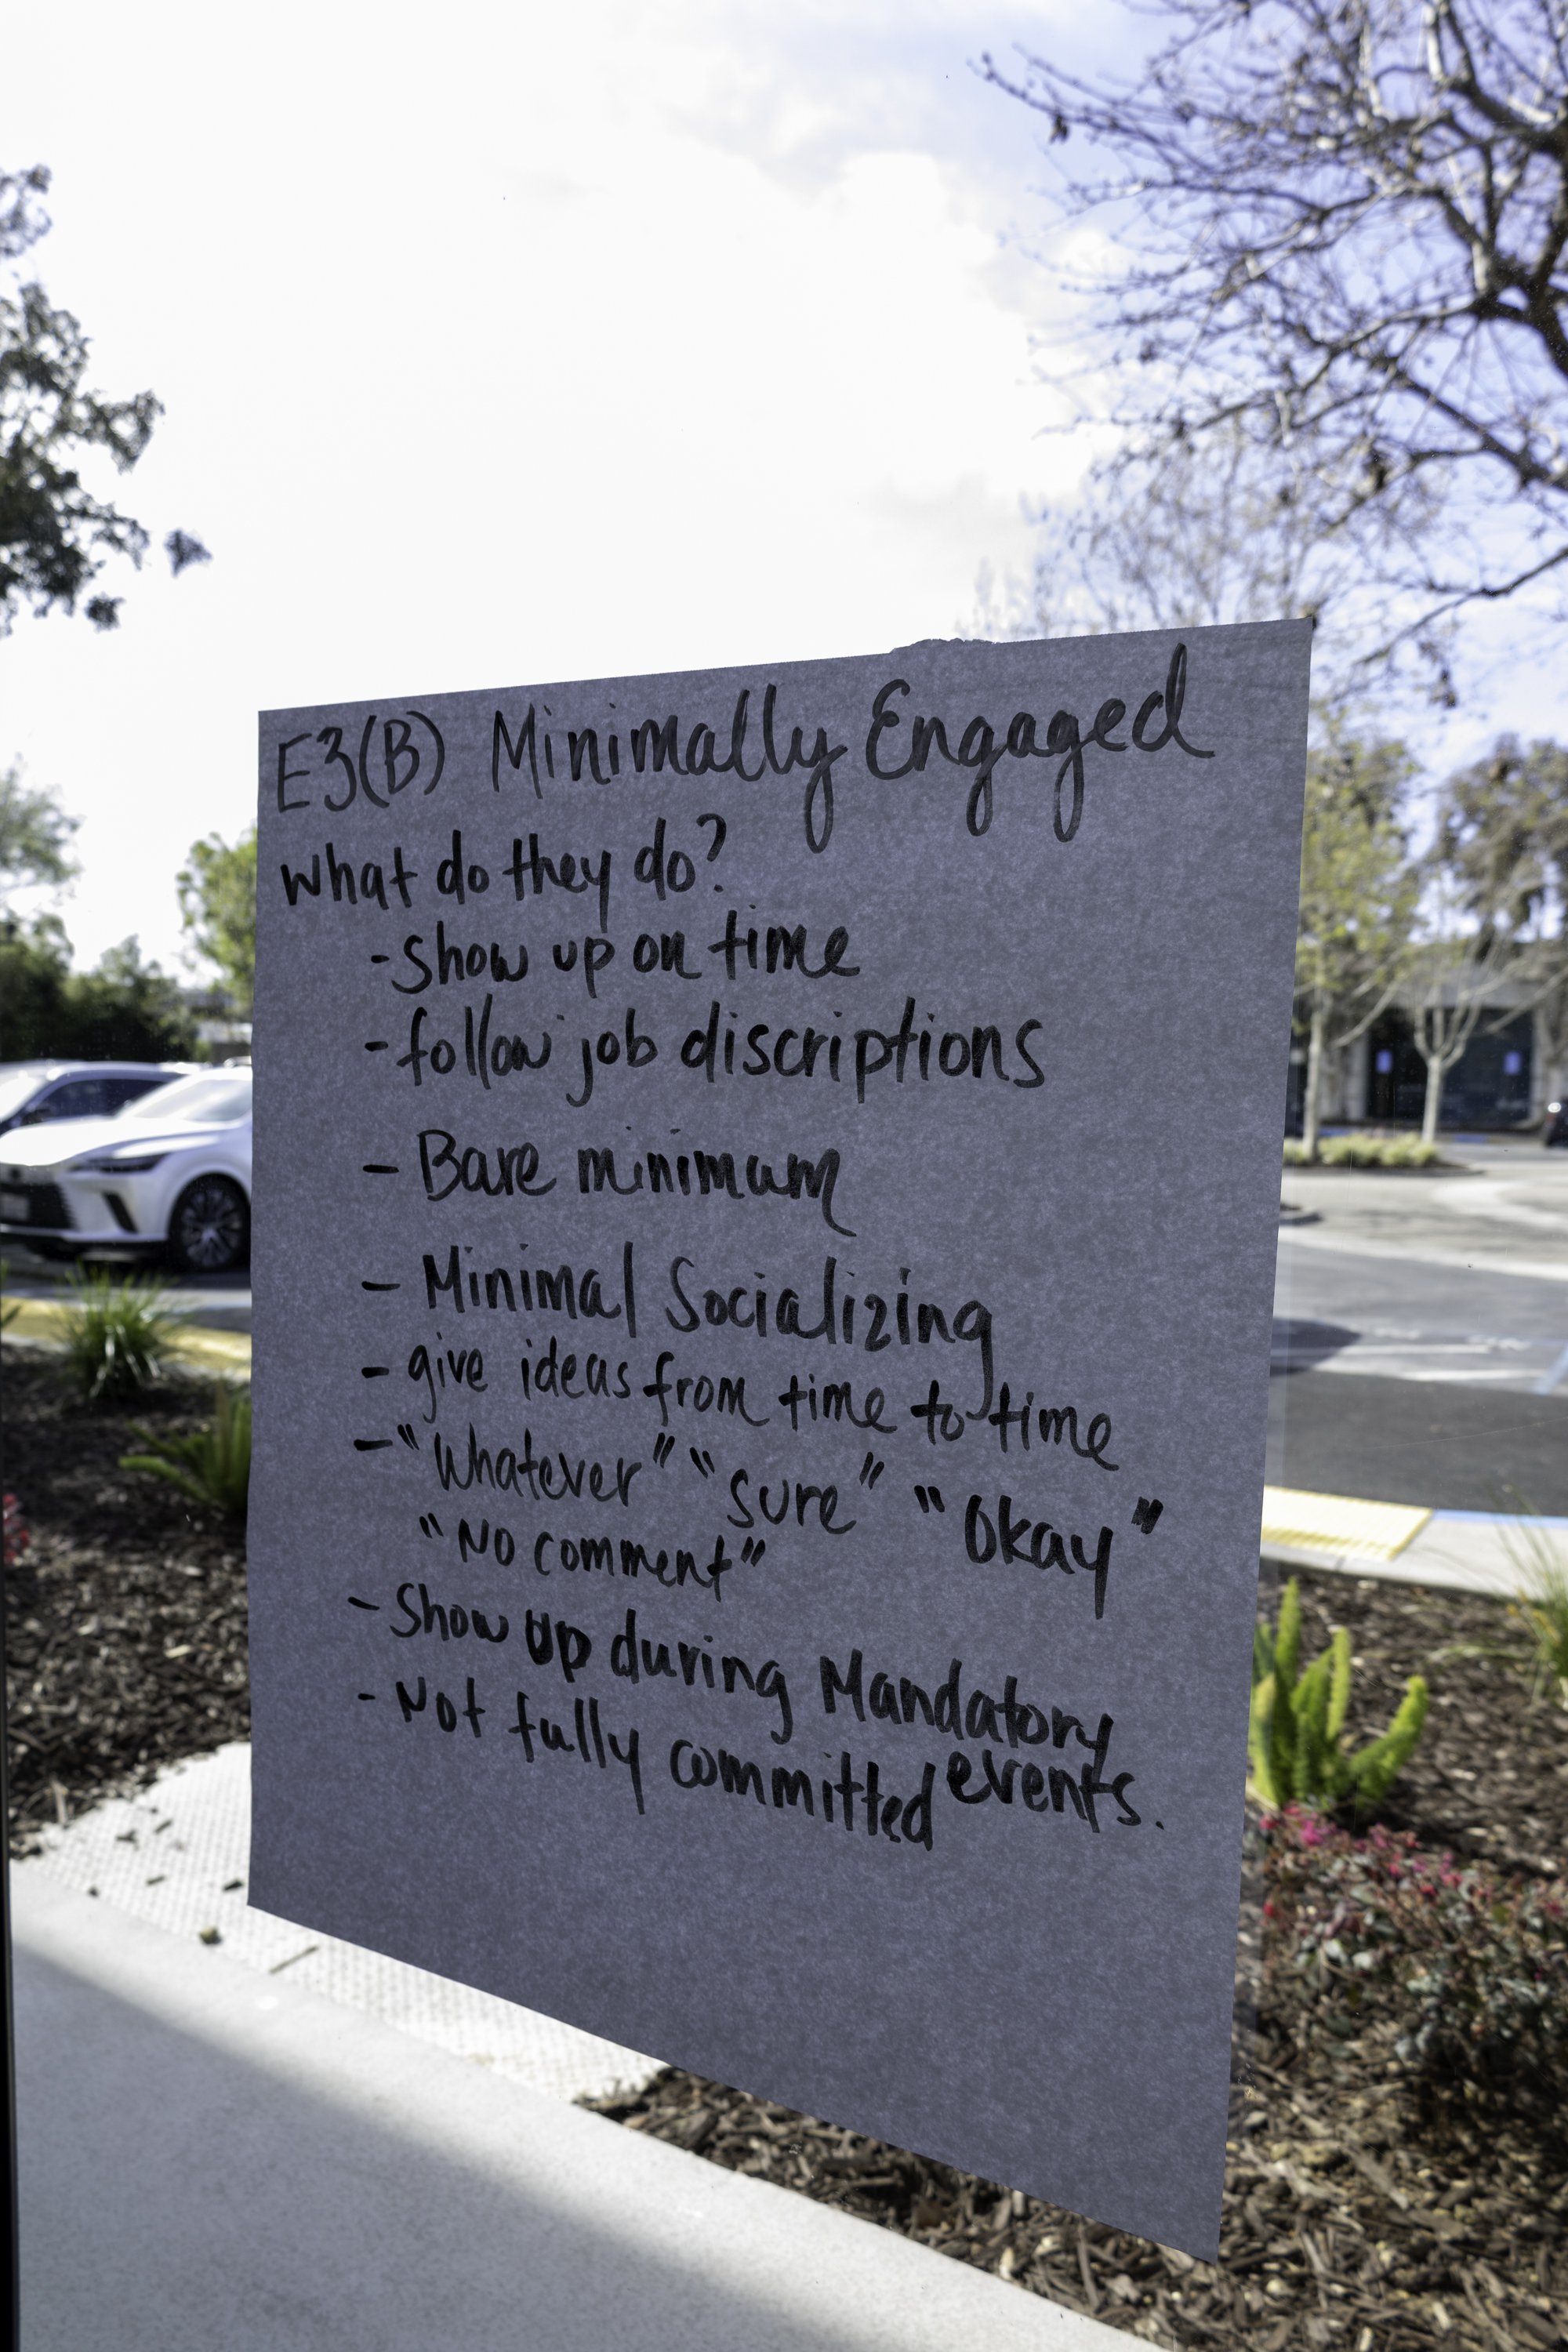 E3(B) Minimally Engaged
What do they do?
- Show up on time
- follow job discriptions
- Bare minimum
- Minimal Socializing
- give ideas from time to time
- "Whatever" "sure" "Okay"
"No comment"
- Show up during Mandatory
events.
- Not fully committed